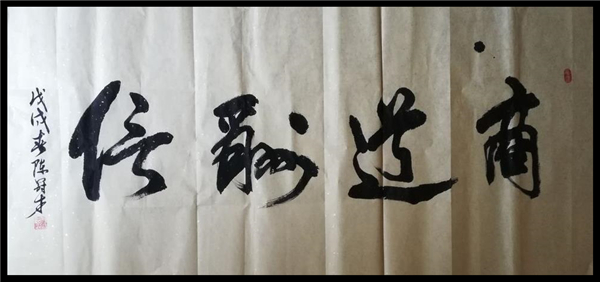 商道酬信
戊戌春陈冠才